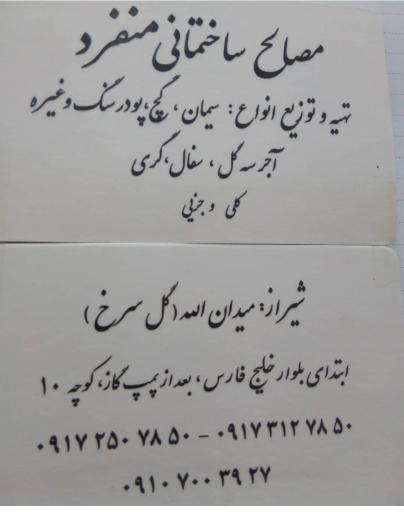 مصالح ساختمانی منفرد
تهیه و توزیع انواع: سیمان، گچ، پودر سنگ و غیره
آجر سه گل، سفال، کری
کلی و جزیی
شیراز: میدان الله (گل سرخ)
ابتدای بلوار خلیج فارس، بعد از پمپ گاز، کوچه ۱۰
۰۹۱۷ ۲۵۰ ۷۸ ۵۰ - ۰۹۱۷ ۳۱۲ ۷۸ ۵۰
۰۹۱۰ ۷۰۰ ۳۹ ۲۷